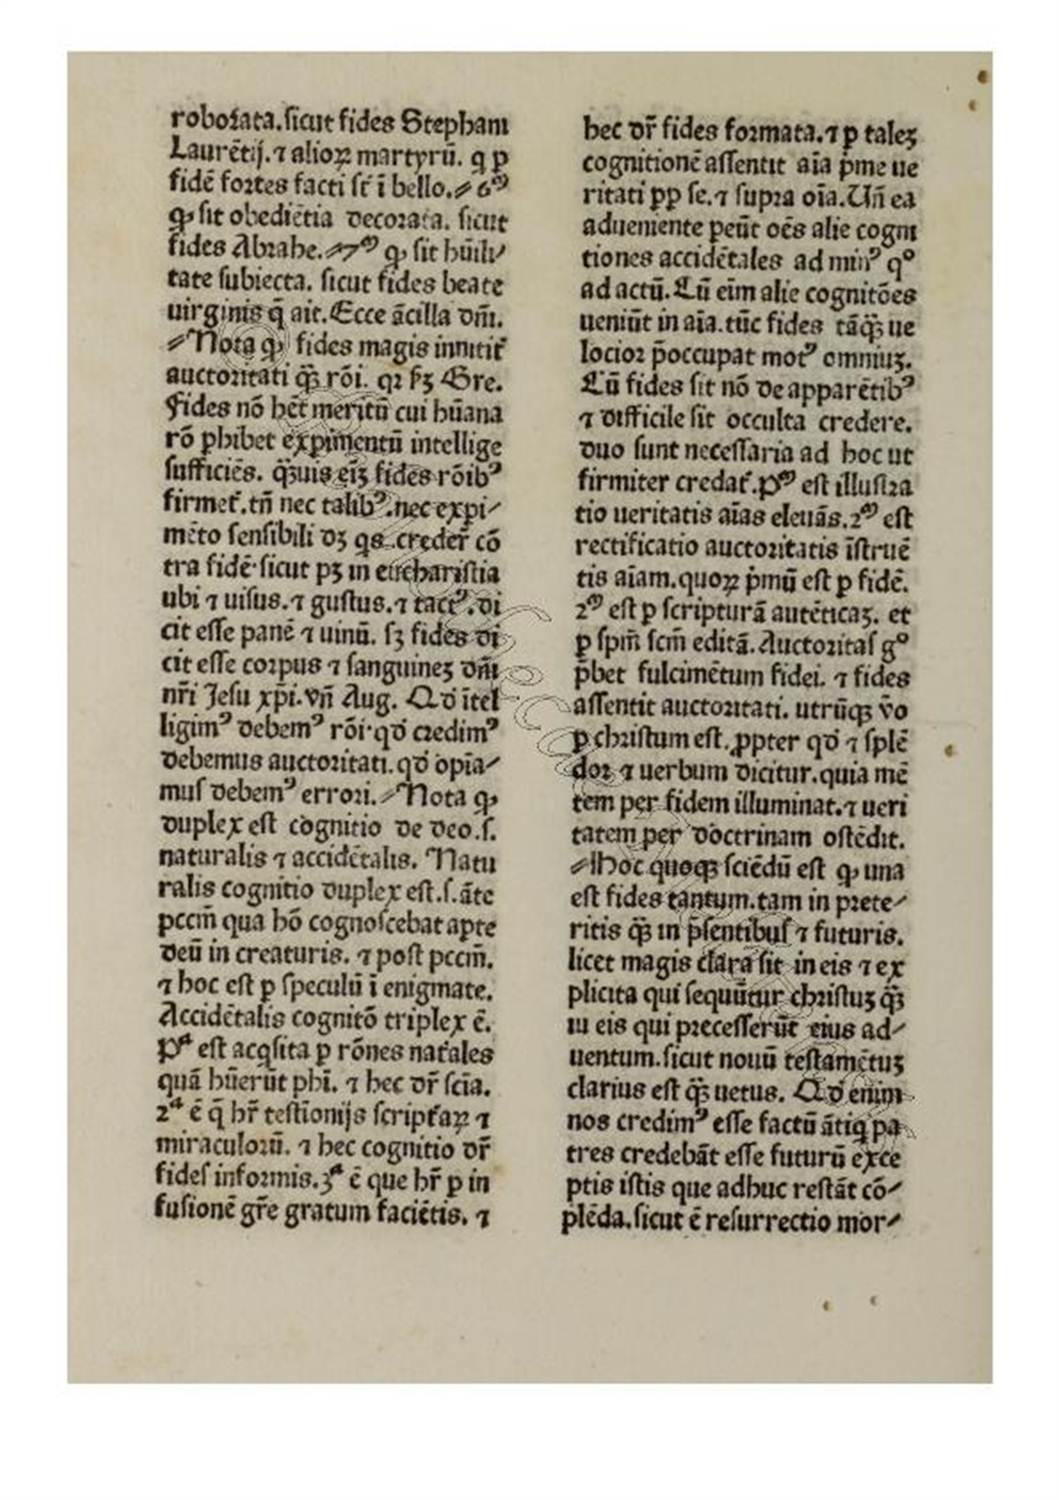 roborata.sicut fides Stephani
Laurētij.⁊ alioꝝ martyrū. q̄ p
fidē fortes facti sūt ī bello.⸗6ꝰ
ꝙ sit obediētia decorata. sicut
fides Abrahe.⸗7ꝰ ꝙ sit hūili⸗
tate subiecta. sicut fides beate
uirginis q̄ ait.Ecce ācilla dn̄i.
⸗Nota ꝙ fides magis innitit᷑
auctoritati q̄ꝫ rōi. qꝛ ẜꝫ Gre.
Fides nō hēt meritū cui hūana
rō phibet expimentū intellige
sufficiēs. q̄ꝫuis eīꝫ fides rōibꝰ
firmet᷑.tn̄ nec talibꝰ.nec expi⸗
mēto sensibili dꝫ qs credeř cō
tra fidē·sicut pꝫ in eucharistia
ubi ⁊ uisus.⁊ gustus.⁊ tactꝰ.di
cit esse panē ⁊ uinū. sꝫ fides di
cit esse corpus ⁊ sanguineꝫ dn̄i
nr̄i Jesu xp̄i.vn̄ Aug. Qd̄ ītel
ligimꝰ debemꝰ rōi·qd̄ credimꝰ
debemus auctoritati.qd̄ opīa⸗
mus debemꝰ errori.⸗Nota ꝙ
duplex est cognitio de deo.s.
naturalis ⁊ accidētalis. Natu
ralis cognitio duplex est.s.āte
pccm̄ qua hō cognoscebat apte
deū in creaturis. ⁊ post pccm̄.
⁊ hoc est p speculū ī enigmate.
Accidētalis cognitō triplex ē.
Pᵃ est acq̇sita p rōnes nat᷑ales
quā hūerūt phī. ⁊ hec dr̄ scīa.
2ᵃ ē q̄ hr̄ testīonijs script᷑aꝝ ⁊
miraculorū. ⁊ hec cognitio dr̄
fides informis.3ᵃ ē que hr̄ p in
fusionē gr̄e gratum faciētis. ⁊
hec dr̄ fides formata.⁊ p taleꝫ
cognitionē assentit aīa p̄me ue
ritati pp se.⁊ supra oīa.Un̄ ea
adueniente peūt oēs alie cogni
tiones accidētales ad minꝰ qº
ad actū.Cū eīm alie cognitōes
ueniūt in aīa.tūc fides tāq̄ꝫ ue
locior p̄occupat motꝰ omniuꝫ.
Cū fides sit nō de apparētibꝰ
⁊ difficile sit occulta credere.
duo sunt necessaria ad hoc ut
firmiter credat᷑.Pꝰ est illustra
tio ueritatis aīas eleuās.2ꝰ est
rectificatio auctoritatis īstruē
tis aīam.quoꝝ p̄mū est p fidē.
2ꝰ est p scripturā autēticaꝫ. et
p spm̄ scm̄ editā.Auctoritas gº
p̄bet fulcimētum fidei. ⁊ fides
assentit auctoritati. utrūqꝫ v̄o
p christum est.ꝓpter qd̄ ⁊ splē
dor ⁊ uerbum dicitur.quia mē
tem per fidem illuminat.⁊ ueri
tatem per doctrinam ostēdit.
⸗Hoc quoqꝫ sciēdū est ꝙ una
est fides tantum.tam in prete⸗
ritis q̄ꝫ in p̄sentibus ⁊ futuris.
licet magis clara sit in eis ⁊ ex
plicita qui sequūtur christuꝫ q̄ꝫ
in eis qui precesserūt eius ad⸗
uentum.sicut nouū testamētuꝫ
clarius est q̄ꝫ uetus. Qd̄ enim
nos credimꝰ esse factū ātiq̇ pa
tres credebāt esse futurū exce
ptis istis que adhuc restāt cō⸗
plēda.sicut ē resurrectio mor⸗